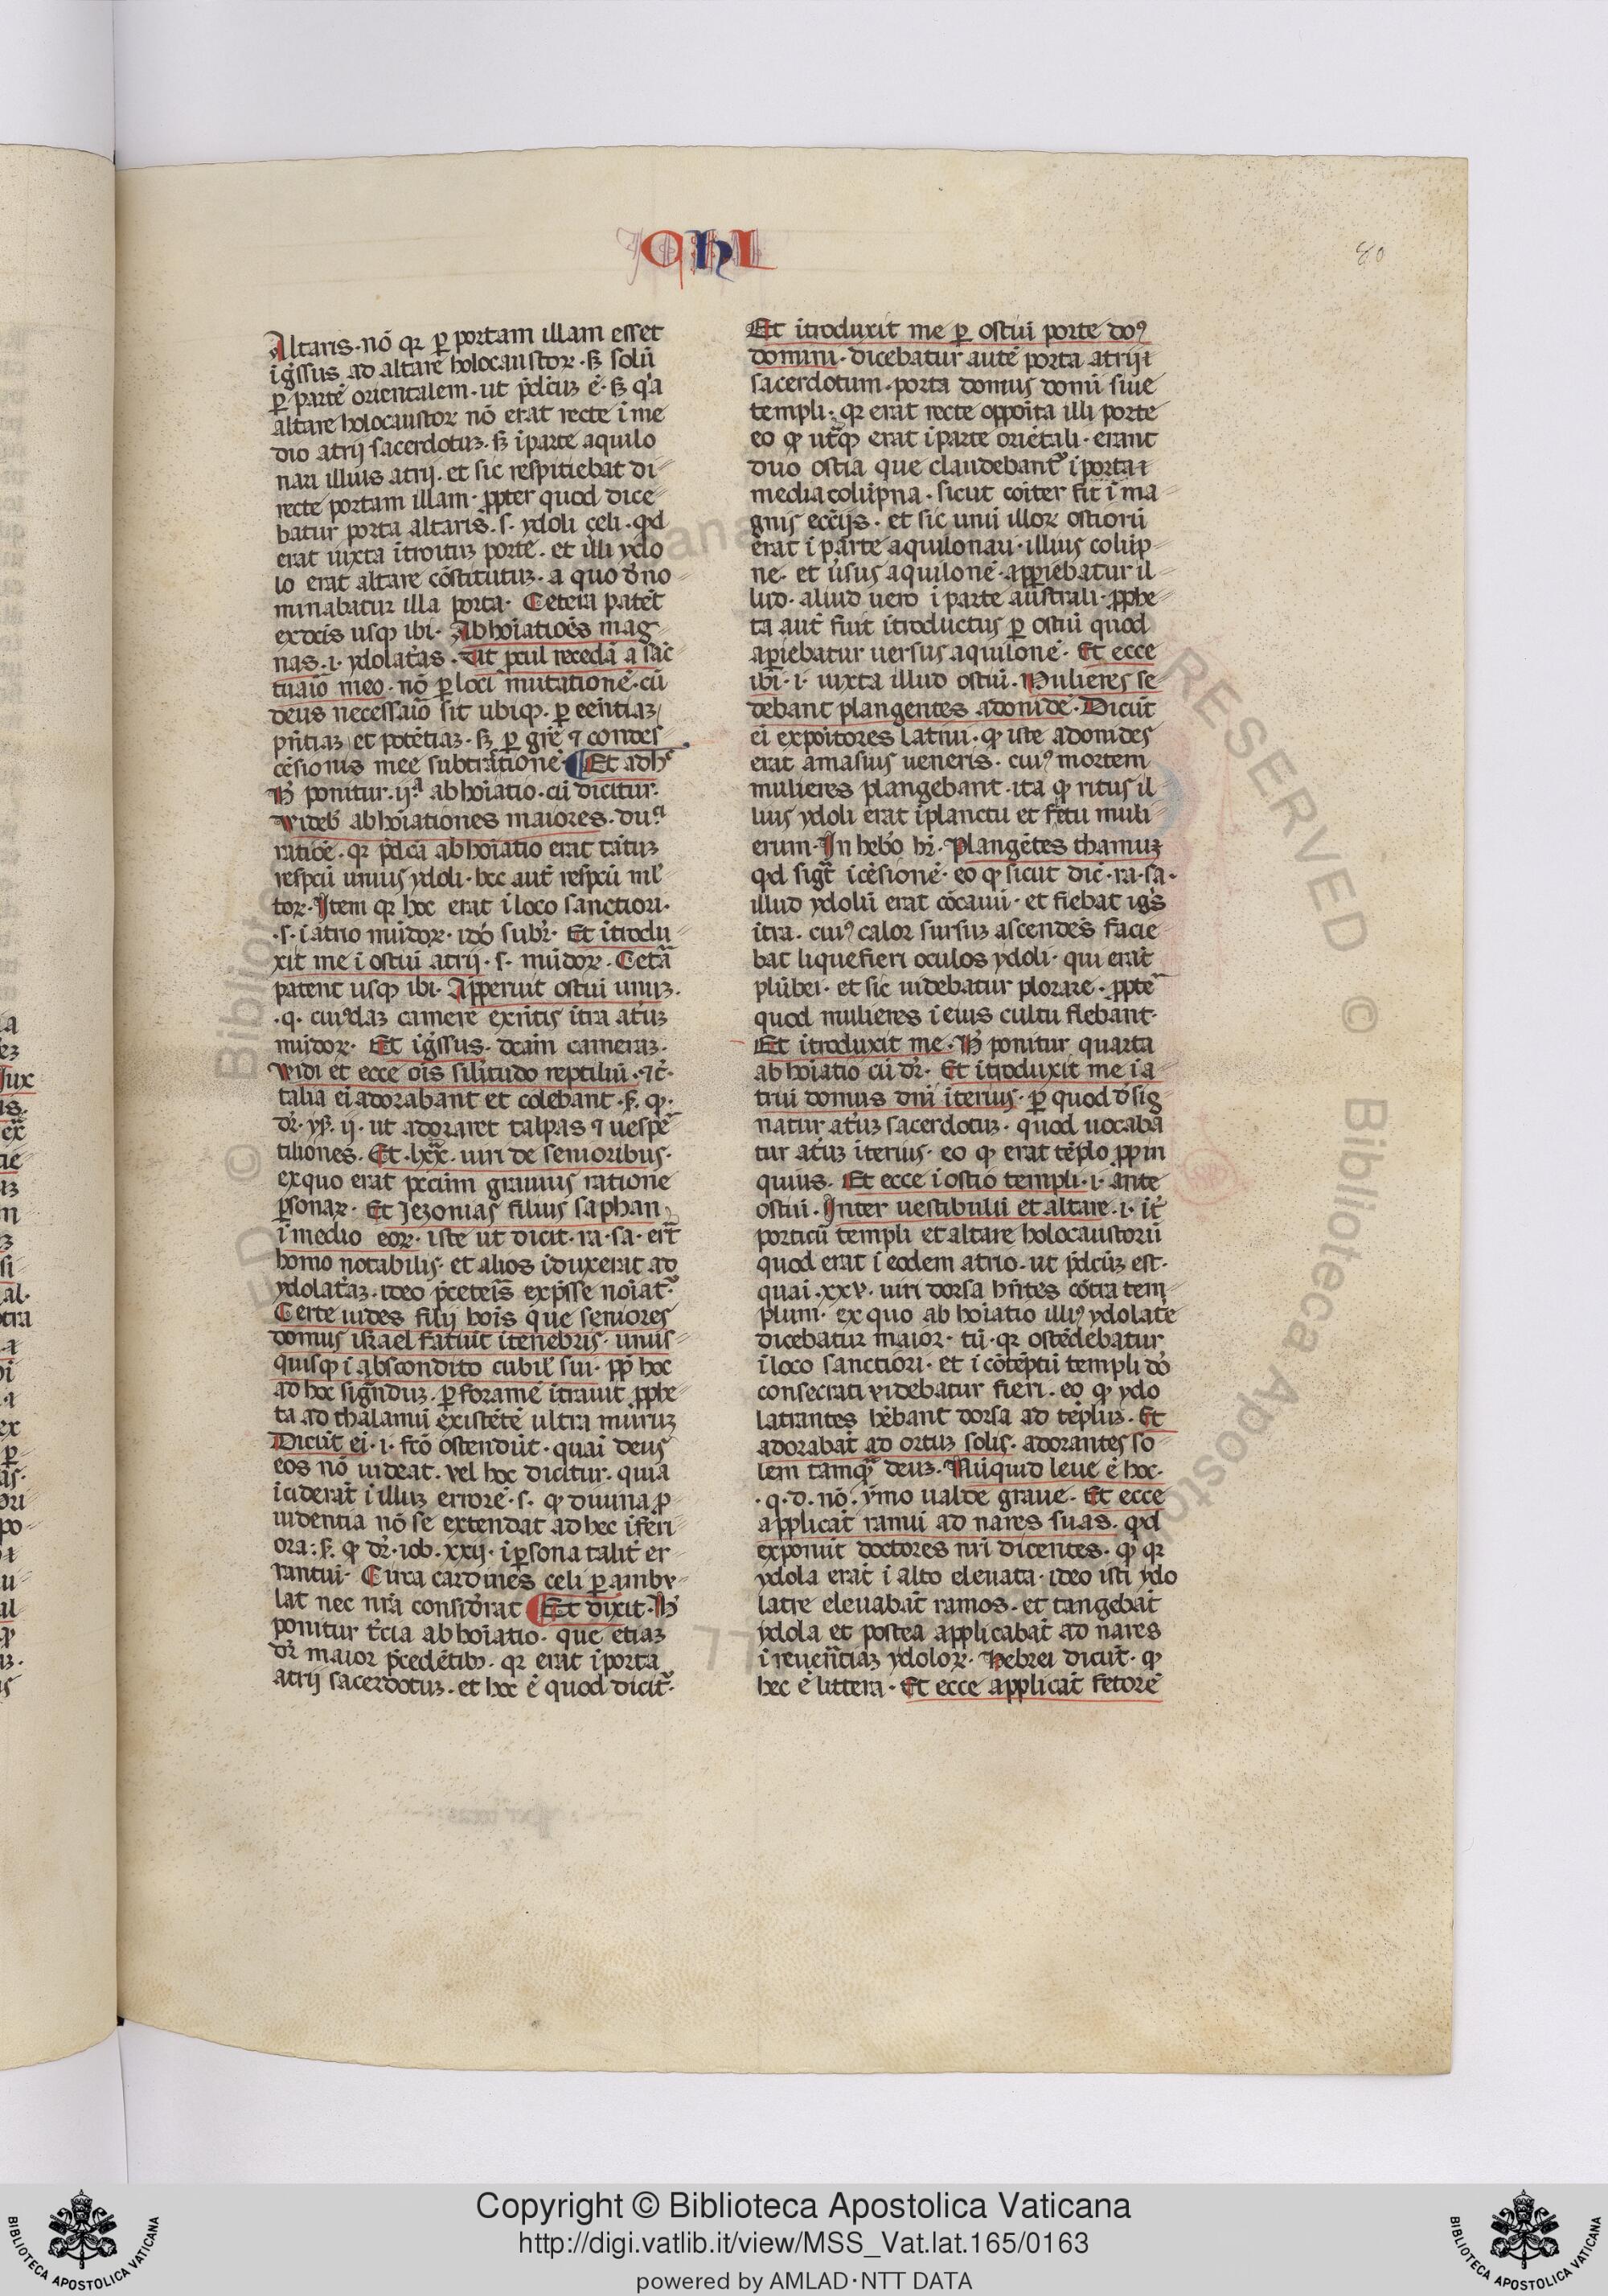 CHL
80
Altaris· nō qr ꝑ portam illam esset
ig̃ssus ad altare holocaustoꝝ· sꝫ solū
ꝑ partē orientalem· ut p̃dc̃uꝫ ē· sꝫ qͥa
altare holocaustoꝝ nō erat recte ī me
dio atrij sacerdotuꝫ· sꝫ ī parte aquilo
nari illius atrij· et sic respitiebat di
recte portam illam· ꝓpter quod dice
batur porta altaris· s· ydoli celi· qd
erat iuxta ītroituꝫ porte· et illi ydo
lo erat altare cōstitutuꝫ· a quo d̓no
minabatur illa porta· Cetera patēt
ex dc̃is usqꝫ ibi· Abhoĩatiōes mag
nas· i· ydolat̃as· Ut ꝓcul recedā a sāc
tuaĩo meo· nō ꝑ loci mutationē· cū
deus necessaĩo sit ubiqꝫ· ꝑ eēntiaꝫ
p̃ntiaꝫ et potētiaꝫ· sꝫ ꝑ gr̃e ⁊ condes
cēsionis mee subtr̃ationē· Et adhͨ
H̓ ponitur· ijᵃ abhoĩatio· cū dicitur·
videb̓ abhoĩationes maiores· duᵃ
ratiōe· qr p̃dc̃a abhoĩatio erat tātuꝫ
respc̃ū unius ydoli· hec aut̃ respc̃ū ml̓
toꝝ· Item qr hoc erat ī loco sanctiori·
·s· ī atrio mūdoꝝ· idō subr̃· Et ītrodu
xit me ī ostiū atrij· s· mūdoꝝ· Cetãa
patent usqꝫ ibi· Apperuit ostiū unuꝫ·
·q· cuiꝰdaꝫ camere exñtis ītra at̃uꝫ
mūdoꝝ· Et ig̃ssus· dc̃am cameraꝫ·
vidi et ecce oīs sil̃itudo reptiliū· ⁊c̃·
talia ei adorabant et colebant· s̃· qꝫ·
dr̃· ys̃· ij· ut adoraret talpas ⁊ uespe
tiliones· Et· lxx· uiri de senioribus·
ex quo erat pc̃c̃ūm grauius ratione
ꝑsonaꝝ· Et Jezonias filius saphan
ī medio eoꝝ· iste ut dicit· ra· sa· er̃t
homo notabilis· et alios īduxerat ad
ydolat̃aꝫ· ideo p̃ceteis̃ exp̃sse noīat̃·
Certe uides filij hoīs que seniores
domus israel faciūt ī tenebris· unus
quisqꝫ ī abscondito cubil̓ sui· ꝓp̃ hoc
ad hoc sigñnduꝫ· ꝑ foramē ītrauit ꝓphe
ta ad thalamū existētē ultra muruꝫ
Dicūt ei· i· fc̃ō ostendūt· quai deus
eos nō uideat· vel hoc dicitur· quia
īciderāt ī illuꝫ errorē· s· qꝫ diuina ꝓ
uidentia nō se extendat ad hec īferi
ora: s̃· qꝫ dr̃· iob· xxij· ī ꝑsona talit̃ er
rantiū· Circa cardines celi ꝑambu
lat nec nr̃a consid̓rat Et dixit· H̓
ponitur t̃cia abhoĩatio· que etiaꝫ
dr̃ maior p̃cedētibꝫ· qr erat ī porta
atrij sacerdotuꝫ· et hoc ē quod dicit̃·
Et ītroduxit me ꝑ ostiū porte doꝰ
domini· dicebatur autē porta atrij
sacerdotum· porta domus domī siue
templi· qr erat recte oppoĩta illi porte
eo qꝫ ut̃qꝫ erat ī parte oriētali· erant
duo ostia que claudebant̃ ī porta ⁊
media colūpna· sicut cōiter fit ī ma
gnis ecc̃ijs· et sic unū illoꝝ ostiorū
erat ī parte aquilonari· illius colūp
ne· et ũsus aquilonē· apꝑiebatur il
lud· aliud uero ī parte australi· ꝓphe
ta aut̃ fuit ītroductus ꝑ ostiū quod
aꝑiebatur uersus aquilonē· Et ecce
ibī· i· iuxta illud ostiū· Mulieres se
debant plangentes adonidē· Dicūt
ei expoĩtores latini· qꝫ iste adonides
erat amasius ueneris· cuiꝰ mortem
mulieres plangebant· ita qꝫ ritus il
lius ydoli erat ī planctu et fletu muli
erum· In heb̓o hr̃· Plangētes thamuꝫ
qd sigt̃ īcēsionē· eo qꝫ sicut dic̃· ra· sa·
illud ydolū erat cōcauū· et fiebat ig̃s
ītra· cuiꝰ calor sursuꝫ ascendēs facie
bat liquefieri oculos ydoli· qui erāt
plūbei· et sic uidebatur plorare· ꝓpte
quod mulieres ī eius cultu flebant·
Et ītroduxit me· H̓ ponitur quarta
abhoĩatio cū dr̃· Et ītroduxit me ī a
triū domus dn̄i īterius· ꝑ quod d̓sig
natur at̃uꝫ sacerdotuꝫ· quod uocaba
tur at̃uꝫ īterius· eo qꝫ erat tēplo ꝓpin
quius· Et ecce ī ostio templi· i· ante
ostiū· Inter uestibulū et altare· i· īt̃
porticū templi et altare holocaustorū
quod erat ī eodem atrio· ut p̃dc̃uꝫ est·
quai· xxv· uiri dorsa hñtes cōtra tem
plum· ex quo abhoĩatio illiꝰ ydolat̃e
dicebatur maior· tū· qr ostēdebatur
ī loco sanctiori· et ī cōtēptū templi dō
consecrati videbatur fieri· eo qꝫ ydo
latrantes hēbant dorsa ad tēpluꝫ· Et
adorabāt ad ortuꝫ solis· adorantes so
lem tamqᷓ deuꝫ· Nūquid leue ē hoc·
·q· d· nō· ymo ualde graue· Et ecce
applicāt ramū ad nares suas· qd
exponūt doctores nr̃i dicentes· qꝫ qr
ydola erāt ī alto eleuata· ideo isti ydo
latre eleuabāt ramos· et tangebāt
ydola et postea applicabāt ad nares
ī reuer̃ntiaꝫ ydoloꝝ· Hebrei dicūt· qꝫ
hec ē littera· Et ecce applicāt fetorē
Copyright © Biblioteca Apostolica Vaticana
http://digi.vatlib.it/view/MSS_Vat.lat.165/0163
powered by AMLAD·NTT DATA
BIBLIOTECA APOSTOLICA VATICANA
BIBLIOTECA APOSTOLICA VATICANA